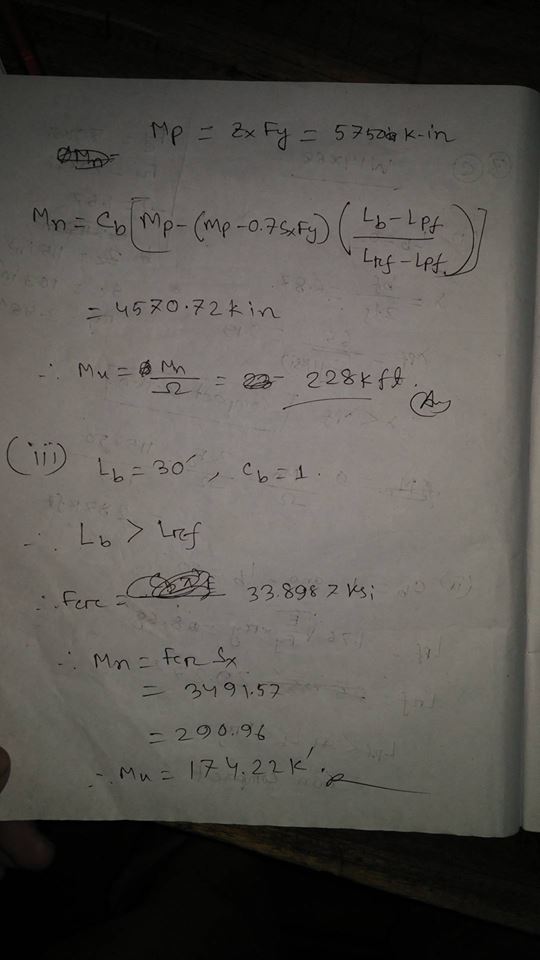 Mp = Zx Fy = 5750 k-in
Mn = Cb [Mp - (Mp - 0.7 Sx Fy) (Lb - Lpf / Lrf - Lpf)]
= 4570.72 k in
∴ Mu = Mn / Ω = 228 k ft.
(iii) Lb = 30', Cb = 1.
∴ Lb > Lrf
∴ Fcrc = 33.8987 ksi
∴ Mn = Fcr Sx
= 3491.57
= 290.96
∴ Mu = 174.22 K'.